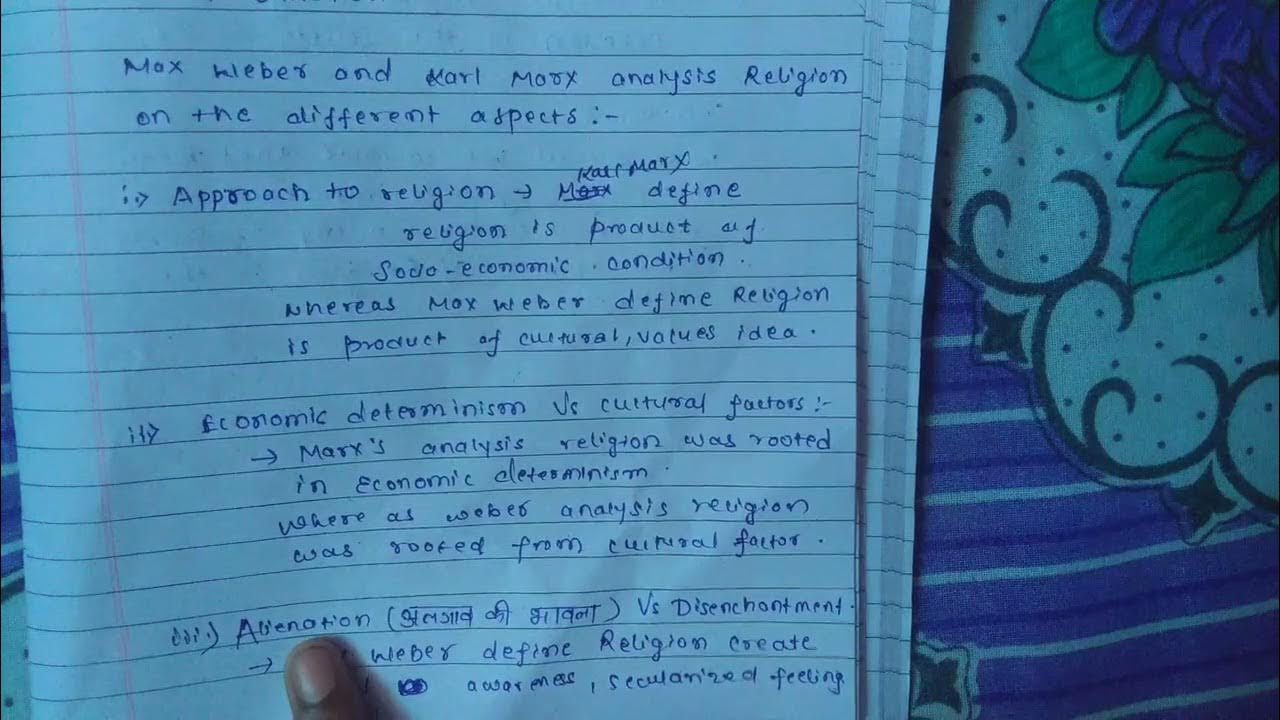 Max Weber and Karl Marx analysis Religion
on the different aspects :-
i:) Approach to religion → Karl Marx define
religion is product of
Socio-economic condition.
whereas Max Weber define Religion
is product of cultural, values idea.
ii:) Economic determinism Vs cultural factors :-
→ Marx's analysis religion was rooted
in Economic determinism.
where as weber analysis religion
was rooted from cultural factor.
iii:) Alienation (अलगाव की भावना) Vs Disenchantment.
→ Weber define Religion create
awareness, secularized feeling